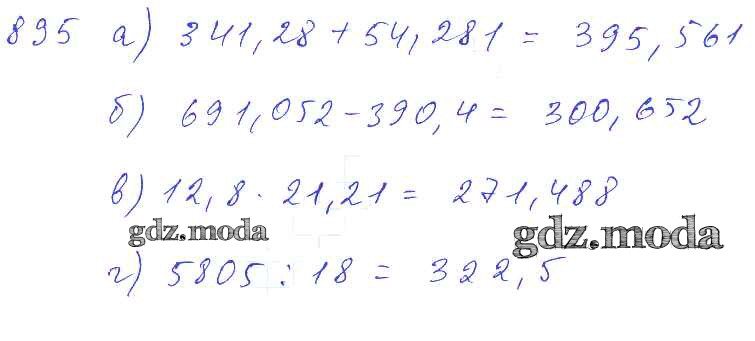 895 а) 341,28 + 54,281 = 395,561
б) 691,052 - 390,4 = 300,652
в) 12,8 · 21,21 = 271,488
gdz.moda gdz.moda
г) 5805 : 18 = 322,5